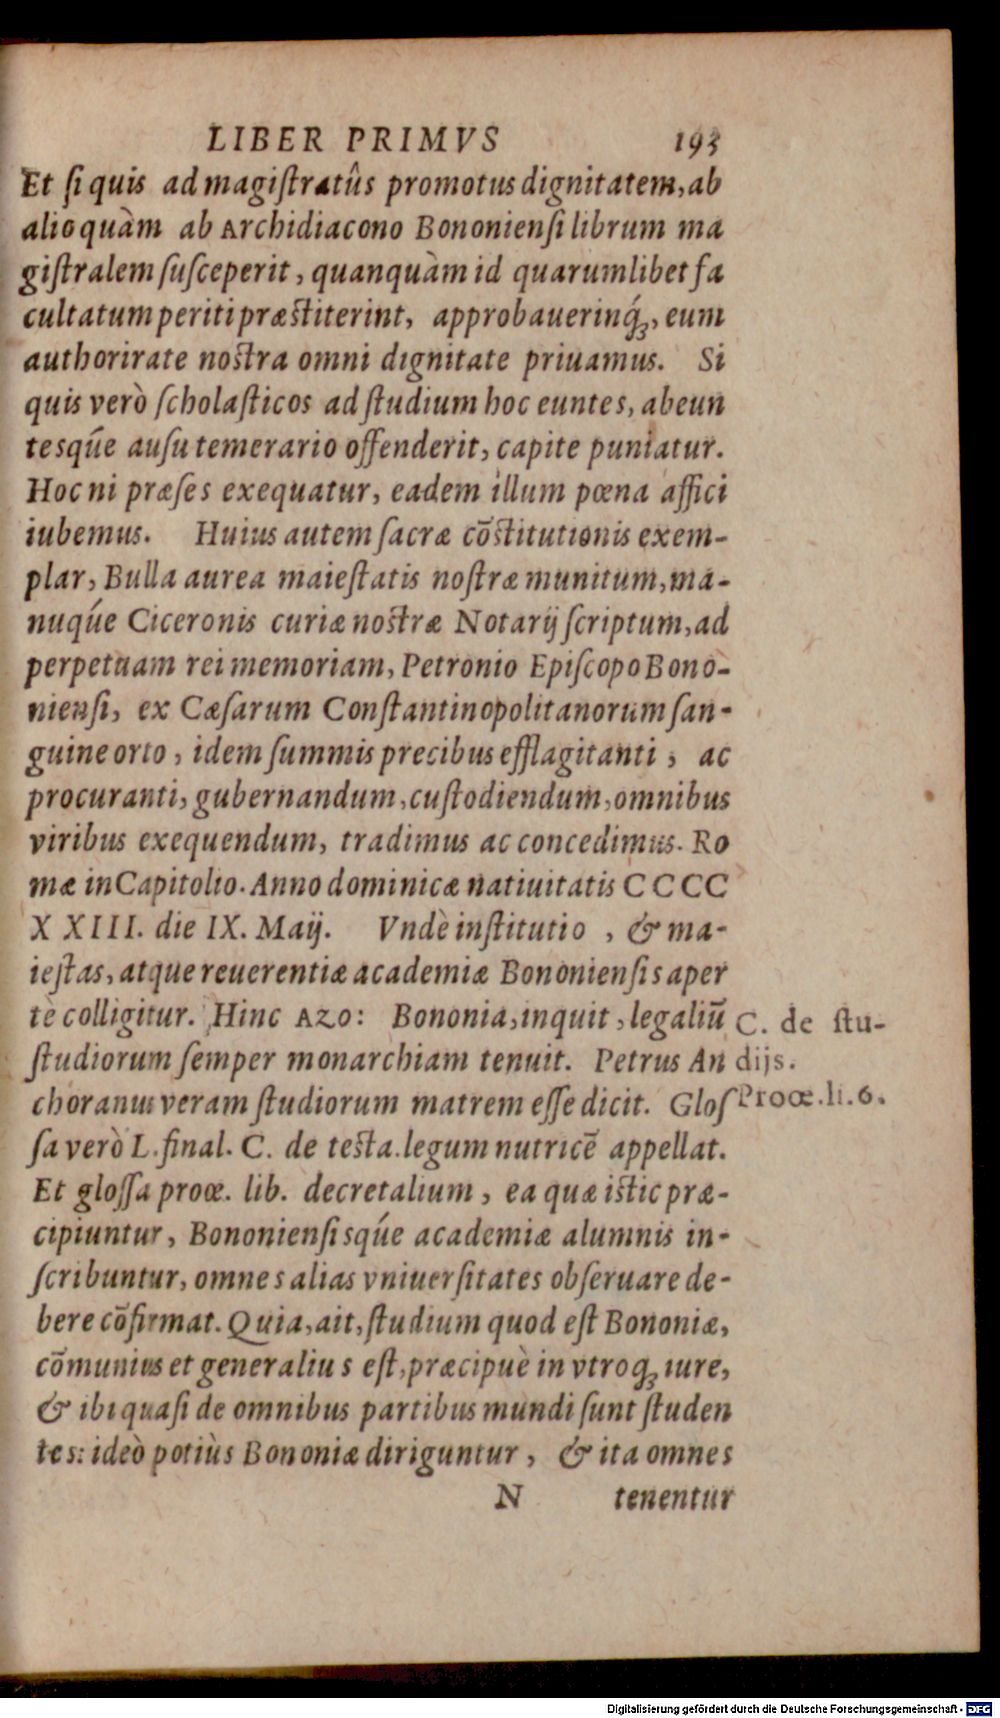 LIBER PRIMVS 193
Et ſi quis ad magiſtratûs promotus dignitatem, ab
alio quàm ab Archidiacono Bononienſi librum ma
giſtralem ſuſceperit, quanquàm id quarumlibet fa
cultatum periti præſtiterint, approbauerinq́ꝫ, eum
authorirate noſtra omni dignitate priuamus. Si
quis verò ſcholaſticos ad ſtudium hoc euntes, abeun
tesqúe auſu temerario offenderit, capite puniatur.
Hoc ni præſes exequatur, eadem illum pœna affici
iubemus. Huius autem ſacræ cõſtitutionis exem-
plar, Bulla aurea maieſtatis noſtræ munitum, ma-
nuqúe Ciceronis curiæ noſtræ Notarij ſcriptum, ad
perpetuam rei memoriam, Petronio Epiſcopo Bono-
nienſi, ex Cæſarum Conſtantinopolitanorum ſan-
guine orto, idem ſummis precibus efflagitanti, ac
procuranti, gubernandum, cuſtodiendum, omnibus
viribus exequendum, tradimus ac concedimus. Ro
mæ in Capitolio. Anno dominicæ natiuitatis CCCC
XXIII. die IX. Maij. Vndè inſtitutio, & ma-
ieſtas, atque reuerentiæ academiæ Bononienſis aper
tè colligitur. Hinc Azo: Bononia, inquit, legaliũ
ſtudiorum ſemper monarchiam tenuit. Petrus An
choranus veram ſtudiorum matrem eſſe dicit. Gloſ
ſa verò L. final. C. de teſta. legum nutricẽ appellat.
Et gloſſa proœ. lib. decretalium, ea quæ iſtic præ-
cipiuntur, Bononienſisqúe academiæ alumnis in-
ſcribuntur, omnes alias vniuerſitates obſeruare de-
bere cõfirmat. Quia, ait, ſtudium quod eſt Bononiæ,
cõmunius et generalius eſt, præcipuè in vtroqꝫ iure,
& ibi quaſi de omnibus partibus mundi ſunt ſtuden
tes: ideò potiùs Bononiæ diriguntur, & ita omnes
N tenentur
C. de ſtu-
dijs.
Proœ. li. 6.
Digitalisierung gefördert durch die Deutsche Forschungsgemeinschaft - DFG